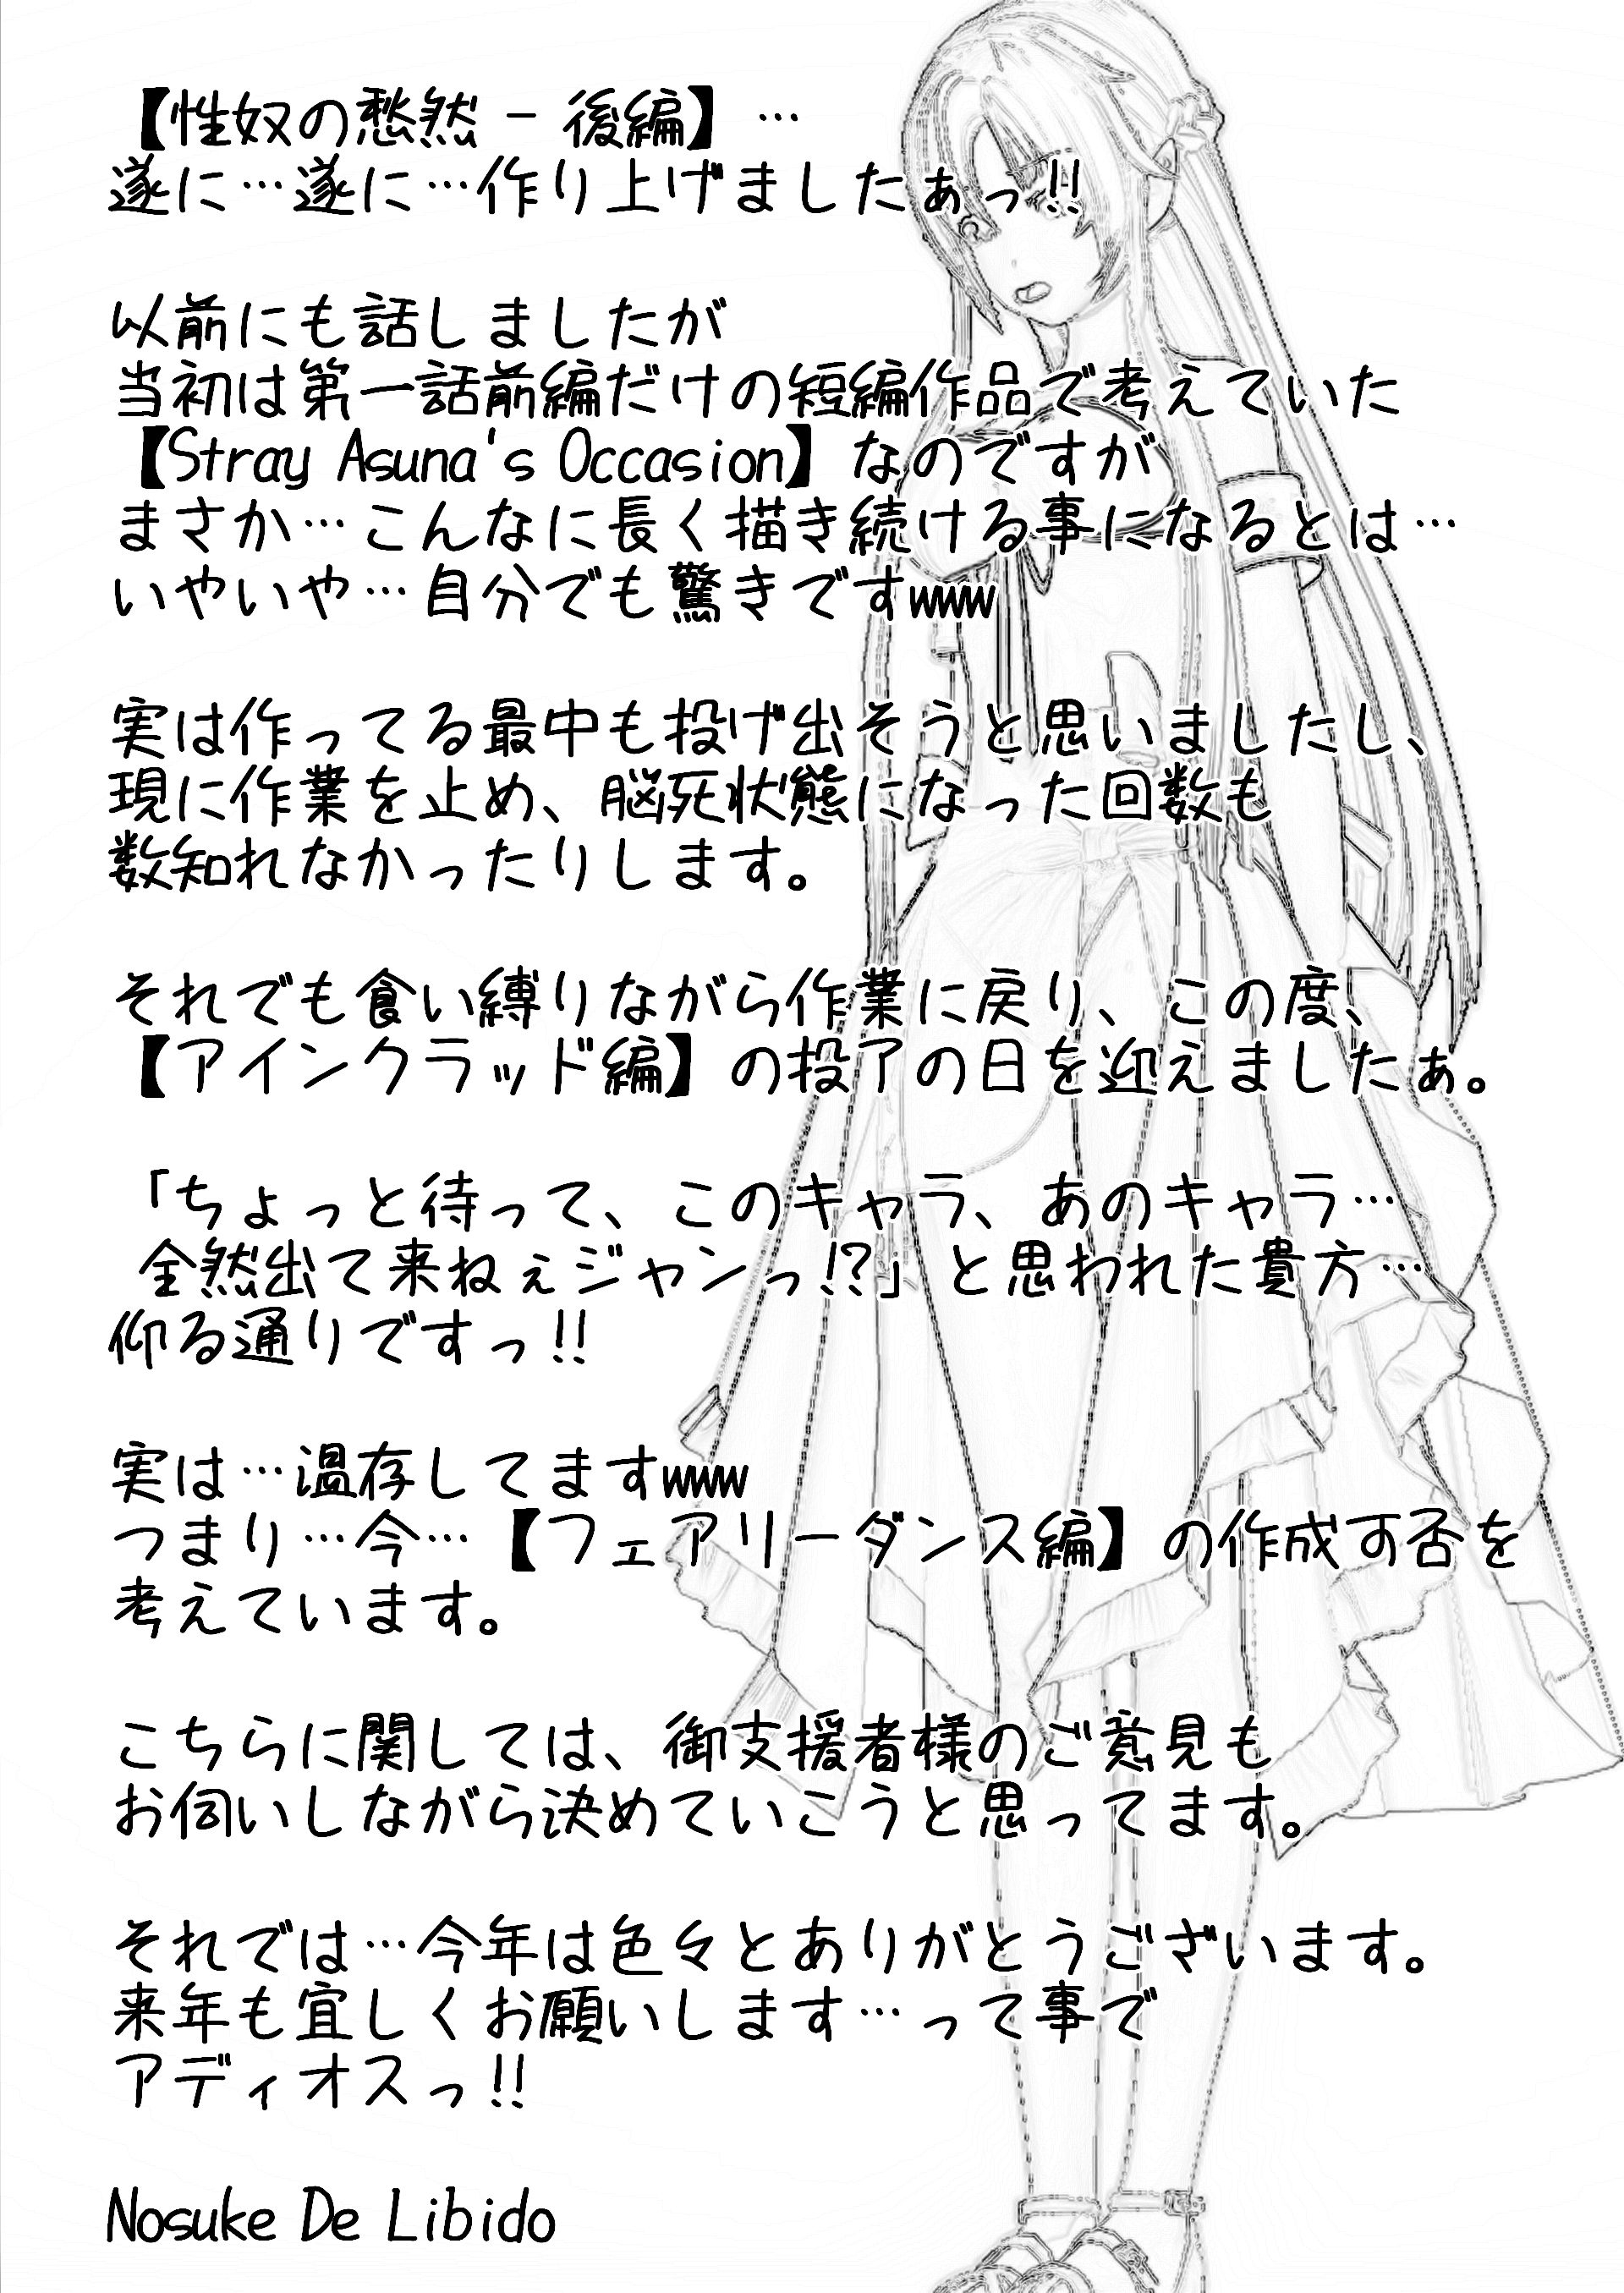 【性奴の愁然 - 後編】…
遂に…遂に…作り上げましたぁっ!!
以前にも話しましたが
当初は第一話前編だけの短編作品で考えていた
【Stray Asuna's Occasion】なのですが
まさか…こんなに長く描き続ける事になるとは…
いやいや…自分でも驚きですwww
実は作ってる最中も投げ出そうと思いましたし、
現に作業を止め、脳死状態になった回数も
数知れなかったりします。
それでも食い縛りながら作業に戻り、この度、
【アインクラッド編】の投了の日を迎えましたぁ。
「ちょっと待って、このキャラ、あのキャラ…
全然出て来ねぇジャンっ!?」と思われた貴方…
仰る通りですっ!!
実は…温存してますwww
つまり…今…【フェアリーダンス編】の作成可否を
考えています。
こちらに関しては、御支援者様のご意見も
お伺いしながら決めていこうと思ってます。
それでは…今年は色々とありがとうございます。
来年も宜しくお願いします…って事で
アディオスっ!!
Nosuke De Libido